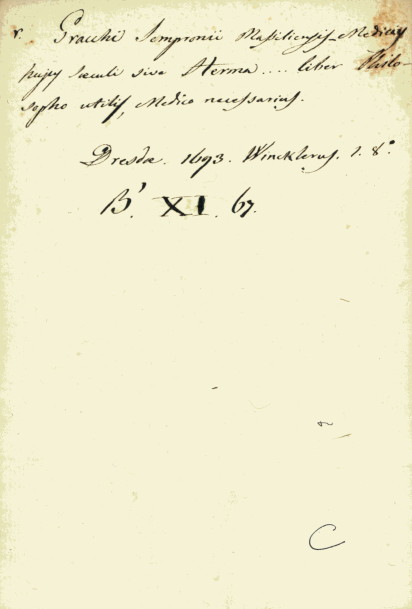 v. Gracchi Sempronii Massiliensis Medicus
hujus sæculi sive Herma .... liber Philo-
sopho utilis, Medico necessarius.
Dresdæ. 1693. Wincklerus. 1. 8°
B'. XI. 67.
C